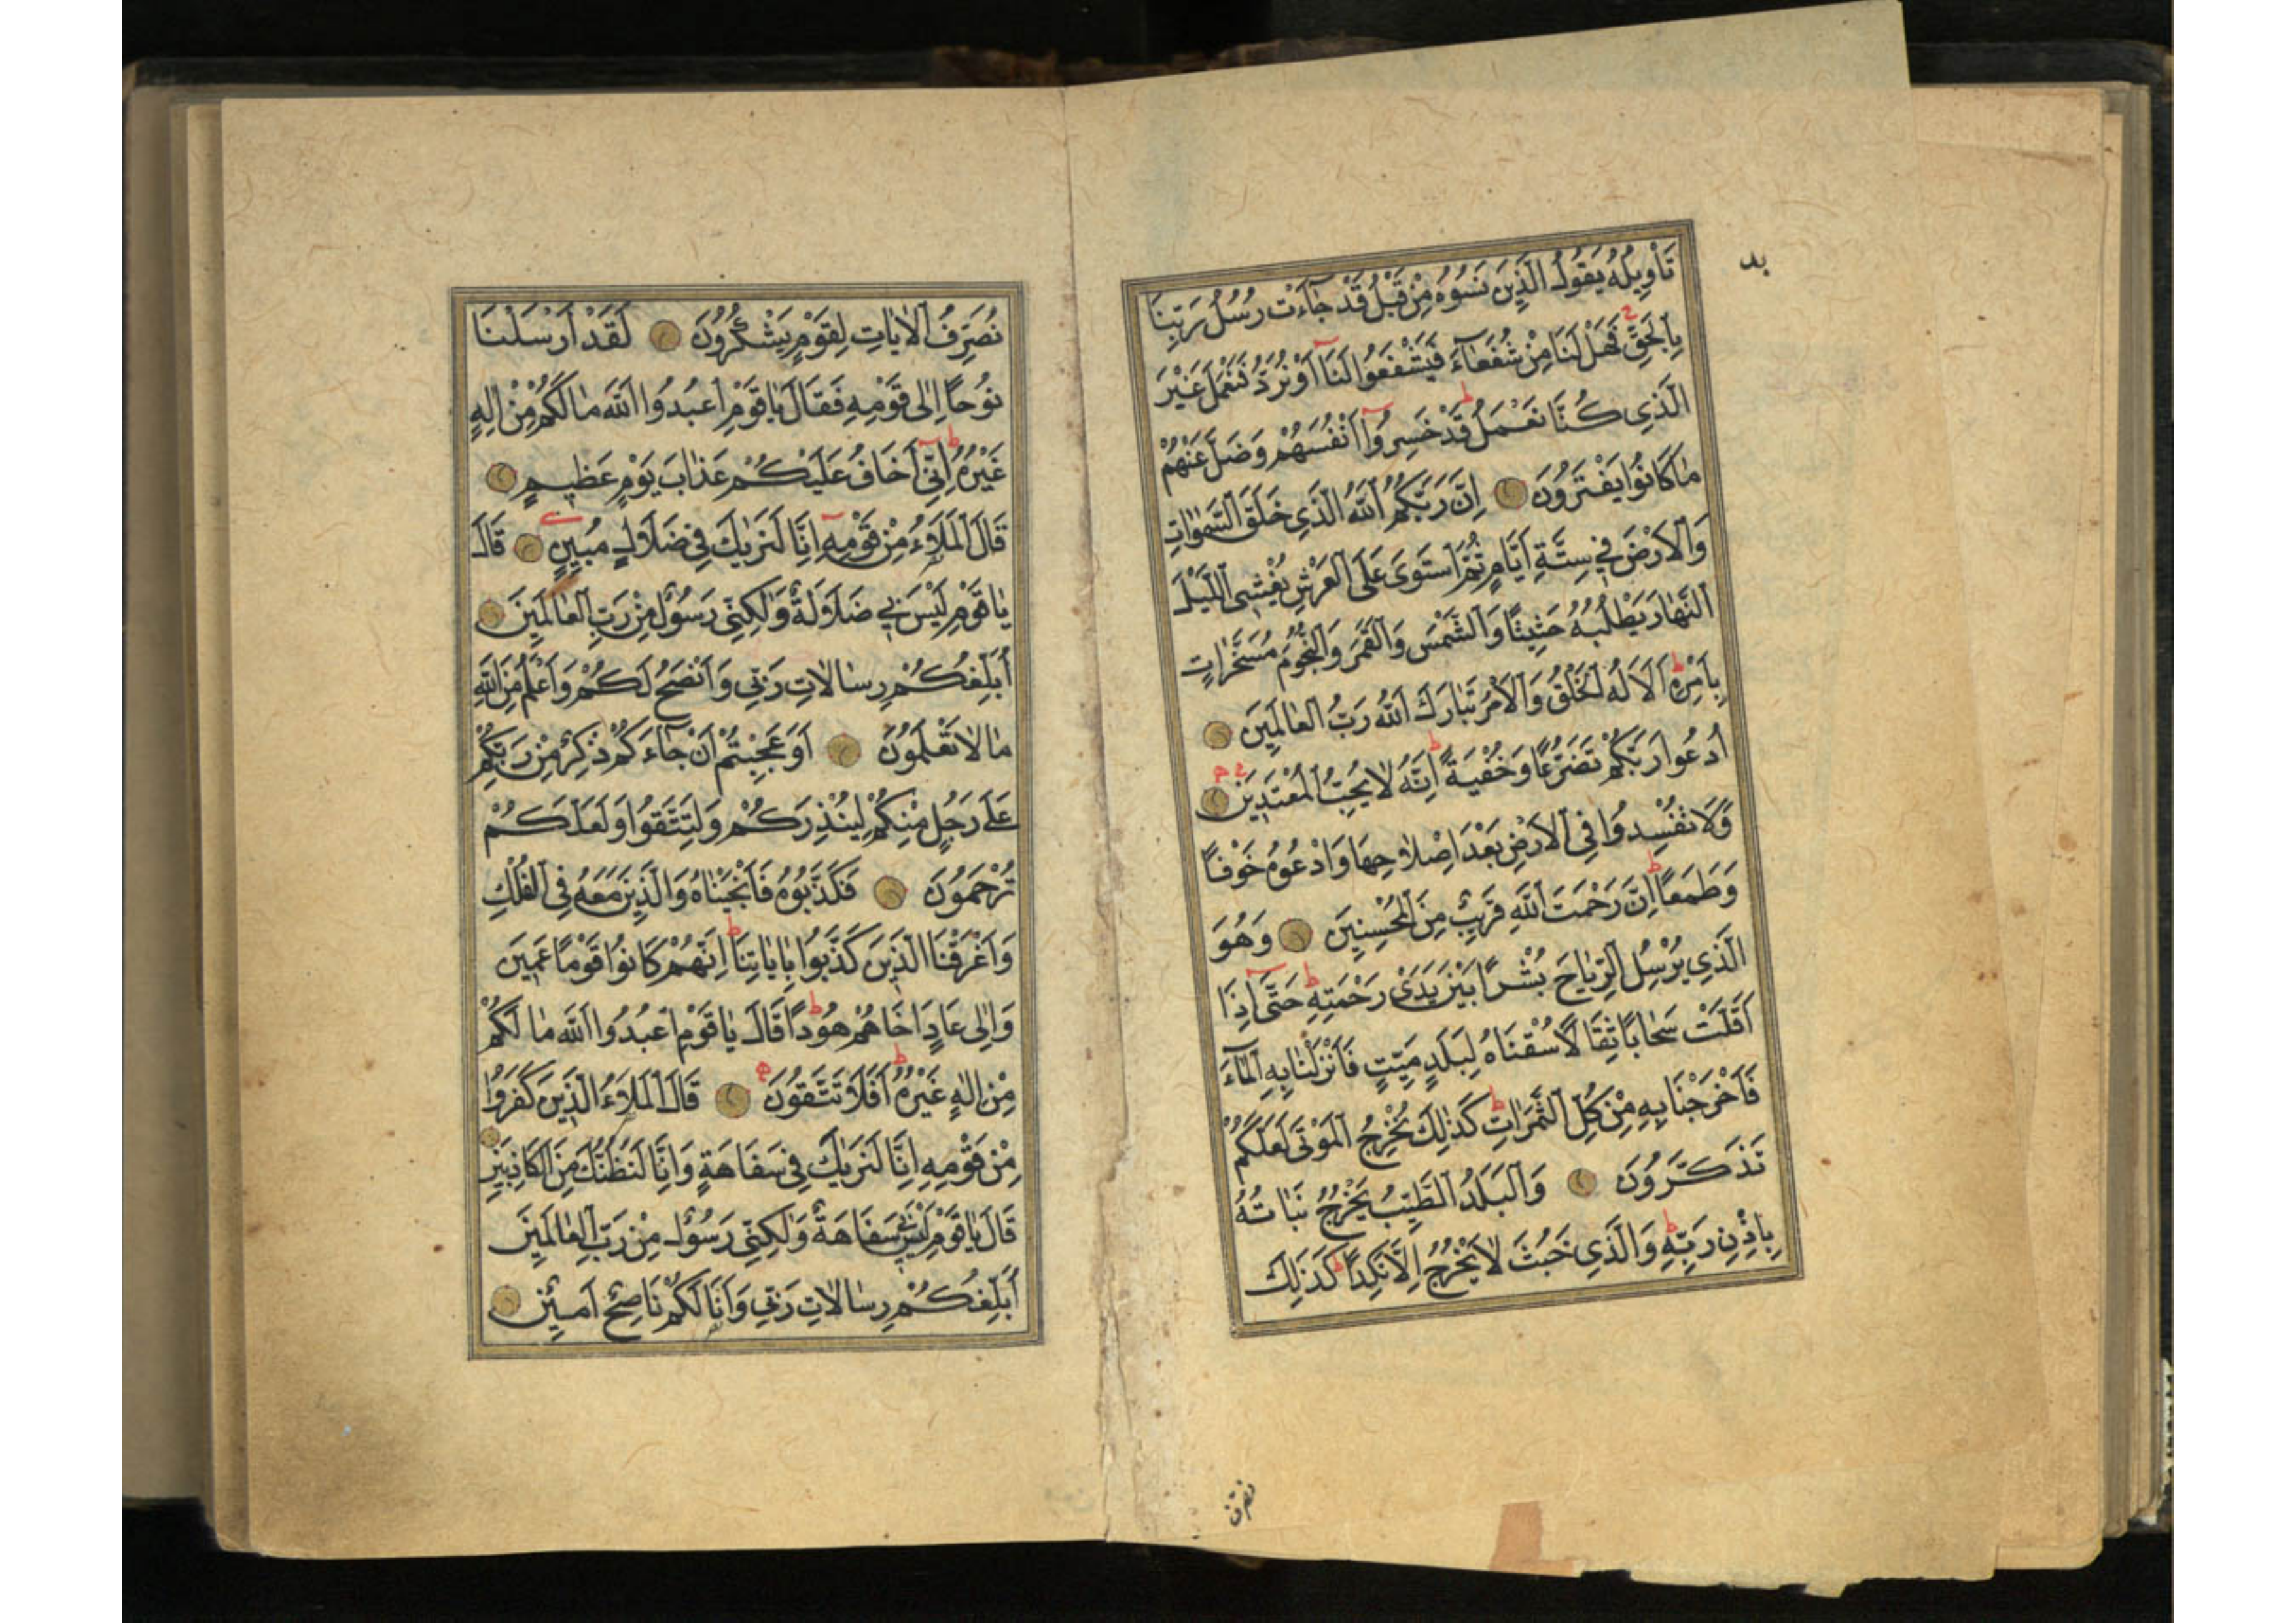 بد
تَأْوِيلُهُ يَقُولُ الَّذِينَ نَسُوهُ مِنْ قَبْلُ قَدْ جَآءَتْ رُسُلُ رَبِّنَا
بِالْحَقِّ فَهَلْ لَنَا مِنْ شُفَعَآءَ فَيَشْفَعُوا لَنَآ أَوْ نُرَدُّ فَنَعْمَلَ غَيْرَ
الَّذِي كُنَّا نَعْمَلُ قَدْ خَسِرُوآ أَنْفُسَهُمْ وَضَلَّ عَنْهُمْ
مَا كَانُوا يَفْتَرُونَ إِنَّ رَبَّكُمُ اللَّهُ الَّذِي خَلَقَ السَّمٰوَاتِ
وَالْأَرْضَ فِي سِتَّةِ أَيَّامٍ ثُمَّ اسْتَوَىٰ عَلَى الْعَرْشِ يُغْشِي اللَّيْلَ
النَّهَارَ يَطْلُبُهُ حَثِيثًا وَالشَّمْسَ وَالْقَمَرَ وَالنُّجُومَ مُسَخَّرَاتٍ
بِأَمْرِهِ أَلَا لَهُ الْخَلْقُ وَالْأَمْرُ تَبَارَكَ اللَّهُ رَبُّ الْعَالَمِينَ
اُدْعُوا رَبَّكُمْ تَضَرُّعًا وَخُفْيَةً إِنَّهُ لَا يُحِبُّ الْمُعْتَدِينَ
وَلَا تُفْسِدُوا فِي الْأَرْضِ بَعْدَ إِصْلَاحِهَا وَادْعُوهُ خَوْفًا
وَطَمَعًا إِنَّ رَحْمَتَ اللَّهِ قَرِيبٌ مِنَ الْمُحْسِنِينَ وَهُوَ
الَّذِي يُرْسِلُ الرِّيَاحَ بُشْرًا بَيْنَ يَدَيْ رَحْمَتِهِ حَتَّىٰٓ إِذَا
أَقَلَّتْ سَحَابًا ثِقَالًا سُقْنَاهُ لِبَلَدٍ مَيِّتٍ فَأَنْزَلْنَا بِهِ الْمَآءَ
فَأَخْرَجْنَا بِهِ مِنْ كُلِّ الثَّمَرَاتِ كَذٰلِكَ نُخْرِجُ الْمَوْتَىٰ لَعَلَّكُمْ
تَذَكَّرُونَ وَالْبَلَدُ الطَّيِّبُ يَخْرُجُ نَبَاتُهُ
بِإِذْنِ رَبِّهِ وَالَّذِي خَبُثَ لَا يَخْرُجُ إِلَّا نَكِدًا كَذٰلِكَ
نصرف
نُصَرِّفُ الْآيَاتِ لِقَوْمٍ يَشْكُرُونَ لَقَدْ أَرْسَلْنَا
نُوحًا إِلَىٰ قَوْمِهِ فَقَالَ يَا قَوْمِ اعْبُدُوا اللَّهَ مَا لَكُمْ مِنْ إِلٰهٍ
غَيْرُهُ إِنِّيٓ أَخَافُ عَلَيْكُمْ عَذَابَ يَوْمٍ عَظِيمٍ
قَالَ الْمَلَأُ مِنْ قَوْمِهِٓ إِنَّا لَنَرٰيكَ فِي ضَلَالٍ مُبِينٍ قَالَ
يَا قَوْمِ لَيْسَ بِي ضَلَالَةٌ وَلٰكِنِّي رَسُولٌ مِنْ رَبِّ الْعَالَمِينَ
أُبَلِّغُكُمْ رِسَالَاتِ رَبِّي وَأَنْصَحُ لَكُمْ وَأَعْلَمُ مِنَ اللَّهِ
مَا لَا تَعْلَمُونَ أَوَعَجِبْتُمْ أَنْ جَآءَكُمْ ذِكْرٌ مِنْ رَبِّكُمْ
عَلَىٰ رَجُلٍ مِنْكُمْ لِيُنْذِرَكُمْ وَلِتَتَّقُوا وَلَعَلَّكُمْ
تُرْحَمُونَ فَكَذَّبُوهُ فَأَنْجَيْنَاهُ وَالَّذِينَ مَعَهُ فِي الْفُلْكِ
وَأَغْرَقْنَا الَّذِينَ كَذَّبُوا بِآيَاتِنَا إِنَّهُمْ كَانُوا قَوْمًا عَمِينَ
وَإِلَىٰ عَادٍ أَخَاهُمْ هُودًا قَالَ يَا قَوْمِ اعْبُدُوا اللَّهَ مَا لَكُمْ
مِنْ إِلٰهٍ غَيْرُهُ أَفَلَا تَتَّقُونَ قَالَ الْمَلَأُ الَّذِينَ كَفَرُوا
مِنْ قَوْمِهِ إِنَّا لَنَرٰيكَ فِي سَفَاهَةٍ وَإِنَّا لَنَظُنُّكَ مِنَ الْكَاذِبِينَ
قَالَ يَا قَوْمِ لَيْسَ بِي سَفَاهَةٌ وَلٰكِنِّي رَسُولٌ مِنْ رَبِّ الْعَالَمِينَ
أُبَلِّغُكُمْ رِسَالَاتِ رَبِّي وَأَنَا لَكُمْ نَاصِحٌ أَمِينٌ